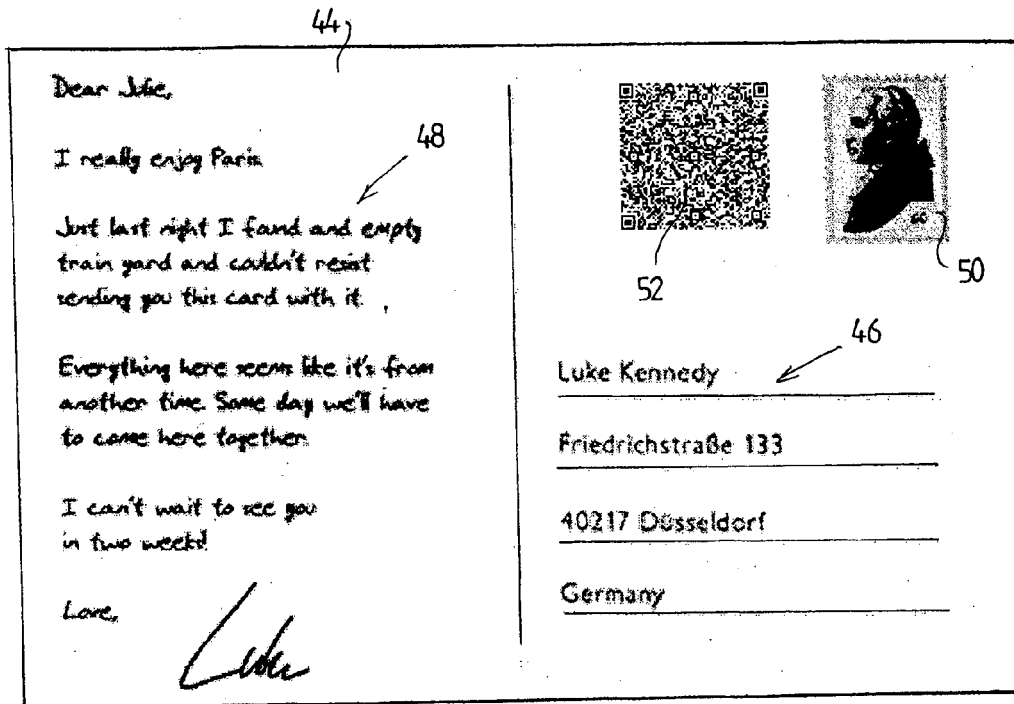 44
Dear Julie,
48
I really enjoy Paris.
Just last night I found and empty
train yard and couldn't resist
sending you this card with it.
Everything here seems like it's from
another time. Some day we'll have
to come here together.
I can't wait to see you
in two weeks!
Love,
Luke
52
50
46
Luke Kennedy
Friedrichstraße 133
40217 Düsseldorf
Germany